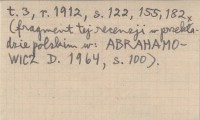 t. 3, r. 1912, s. 122, 155, 182x
(fragment tej recenzji w przekła-
dzie polskim w: ABRAHAMO-
WICZ D. 1964, s. 100).